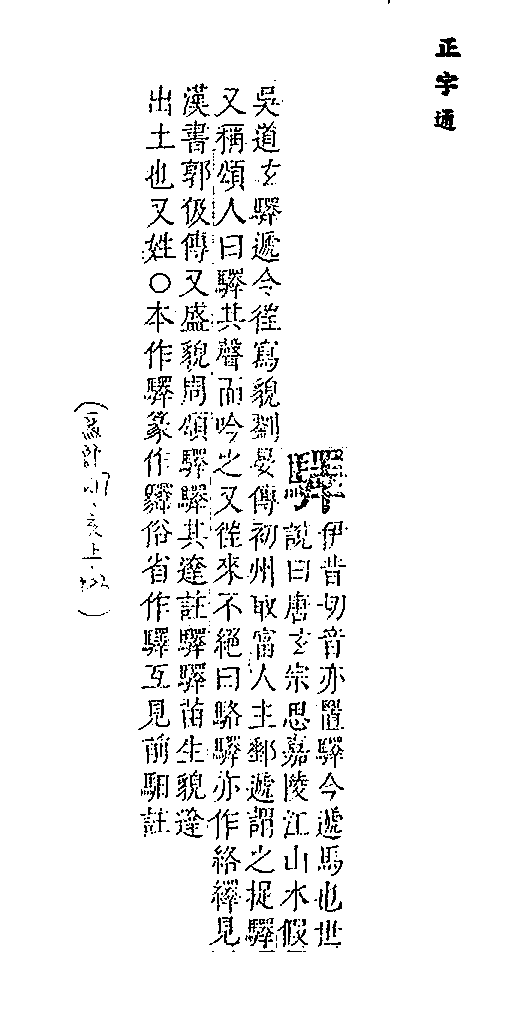 正字通
驛
伊昔切音亦置驛今遞馬也世
說曰唐玄宗思嘉陵江山水假
吳道玄驛遞令徃寫貌劉晏傳初州取富人主郵遞謂之捉驛
又稱頌人曰驛其聲而吟之又徃來不絕曰駱驛亦作絡繹見
漢書郭伋傳又盛貌周頌驛驛其達註驛驛苗生貌達
出土也又姓○本作驛篆作俗省作驛互見前馹註